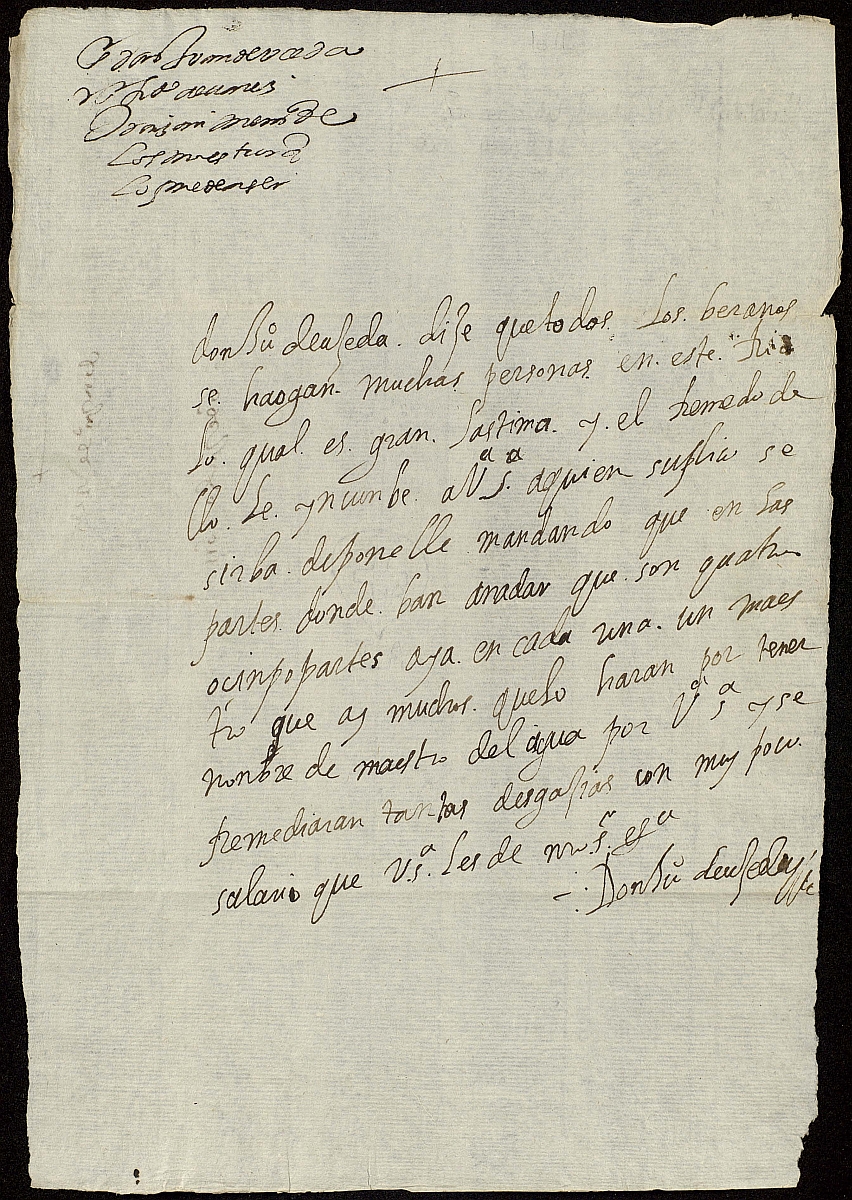 +
los que
lo pueden ser
don Juº de uzeda. dize que todos. los. beranos
se. haogan. muchas personas. en. este. Rio
lo. qual. es. gran. lastima. y. el Remedio de
llo. le. yncunbe. a V.ª S.ª a quien suplica se
sirba. de ponelle mandando que en las
partes. donde. ban a nadar que. son quatro
o cinco partes aya. en cada una. un maes
tro que ay muchos. que lo haran por tener
nonbre de maestro del agua por V.ª S.ª y se
Remediaran tantas desgracias con muy poco.
salario que V.S.ª les de
Don Juº de uzeda